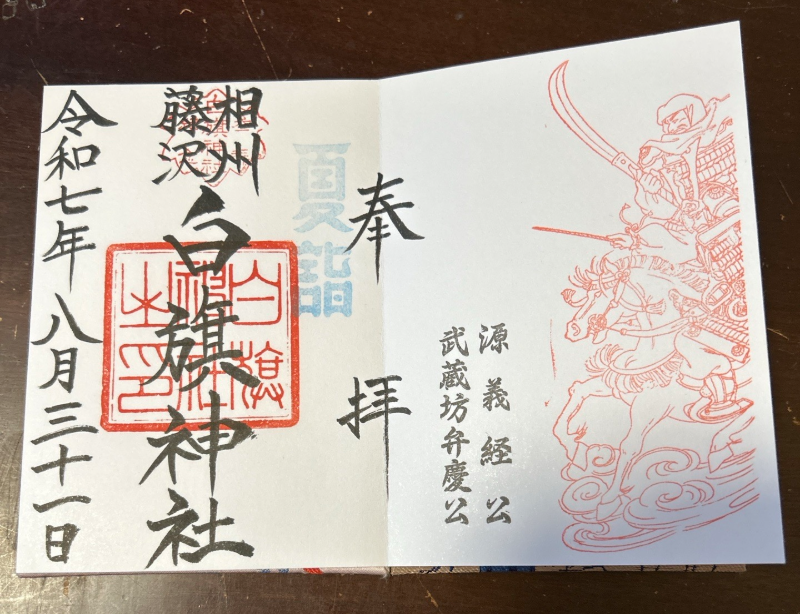 源義経公
武蔵坊弁慶公
奉拝
夏詣
相州
藤沢
白旗神社
白旗
神社
之印
令和七年八月三十一日